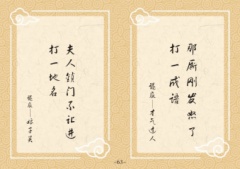 那厮刚发了
打一成语
谜底——才气人
夫人锁门不让进
打一地名
谜底——娘子关
-63-